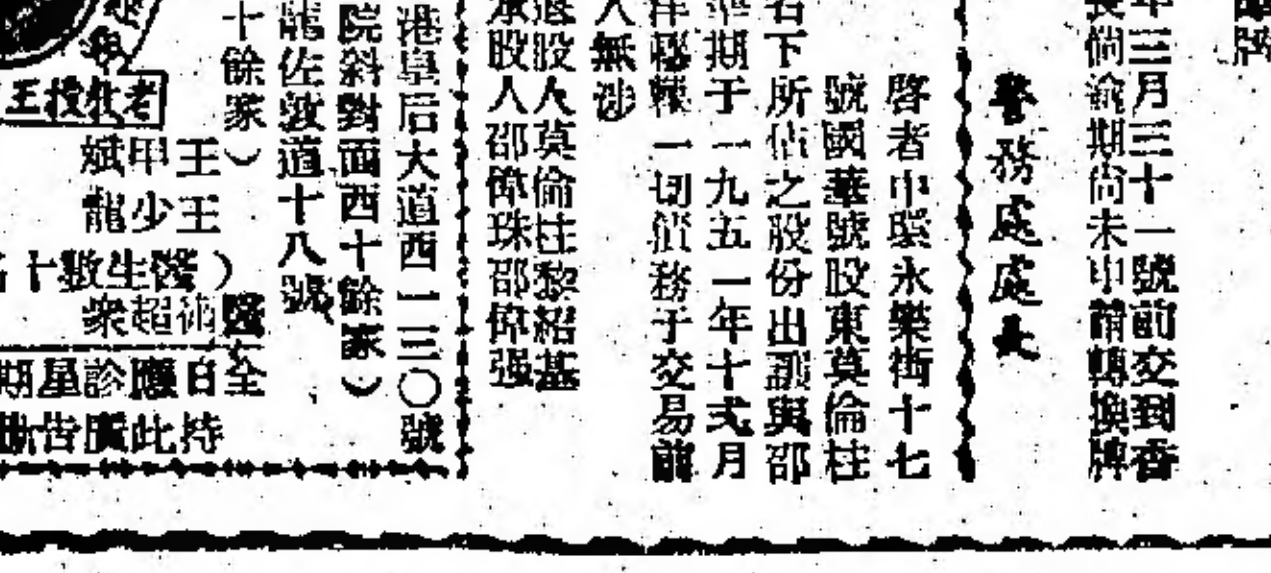 年三月三十一號前交到香
長倘逾期尚未申請轉換牌
警務處處長
啓者中環永樂街十七
號國華號股東莫倫柱
名下所佔之股份出讓與邵
準期于一九五一年十弍月
洋轇轕一切債務于交易前
人無涉
退股人莫倫柱黎紹基
承股人邵偉珠邵偉强
港皇后大道西一三〇號
院斜對面西十餘家）
龍佐敦道十八號
十餘家）
王授教者
王甲斌
王少龍
（醫生數十名
醫術超衆
全日應診星期
持此廣告